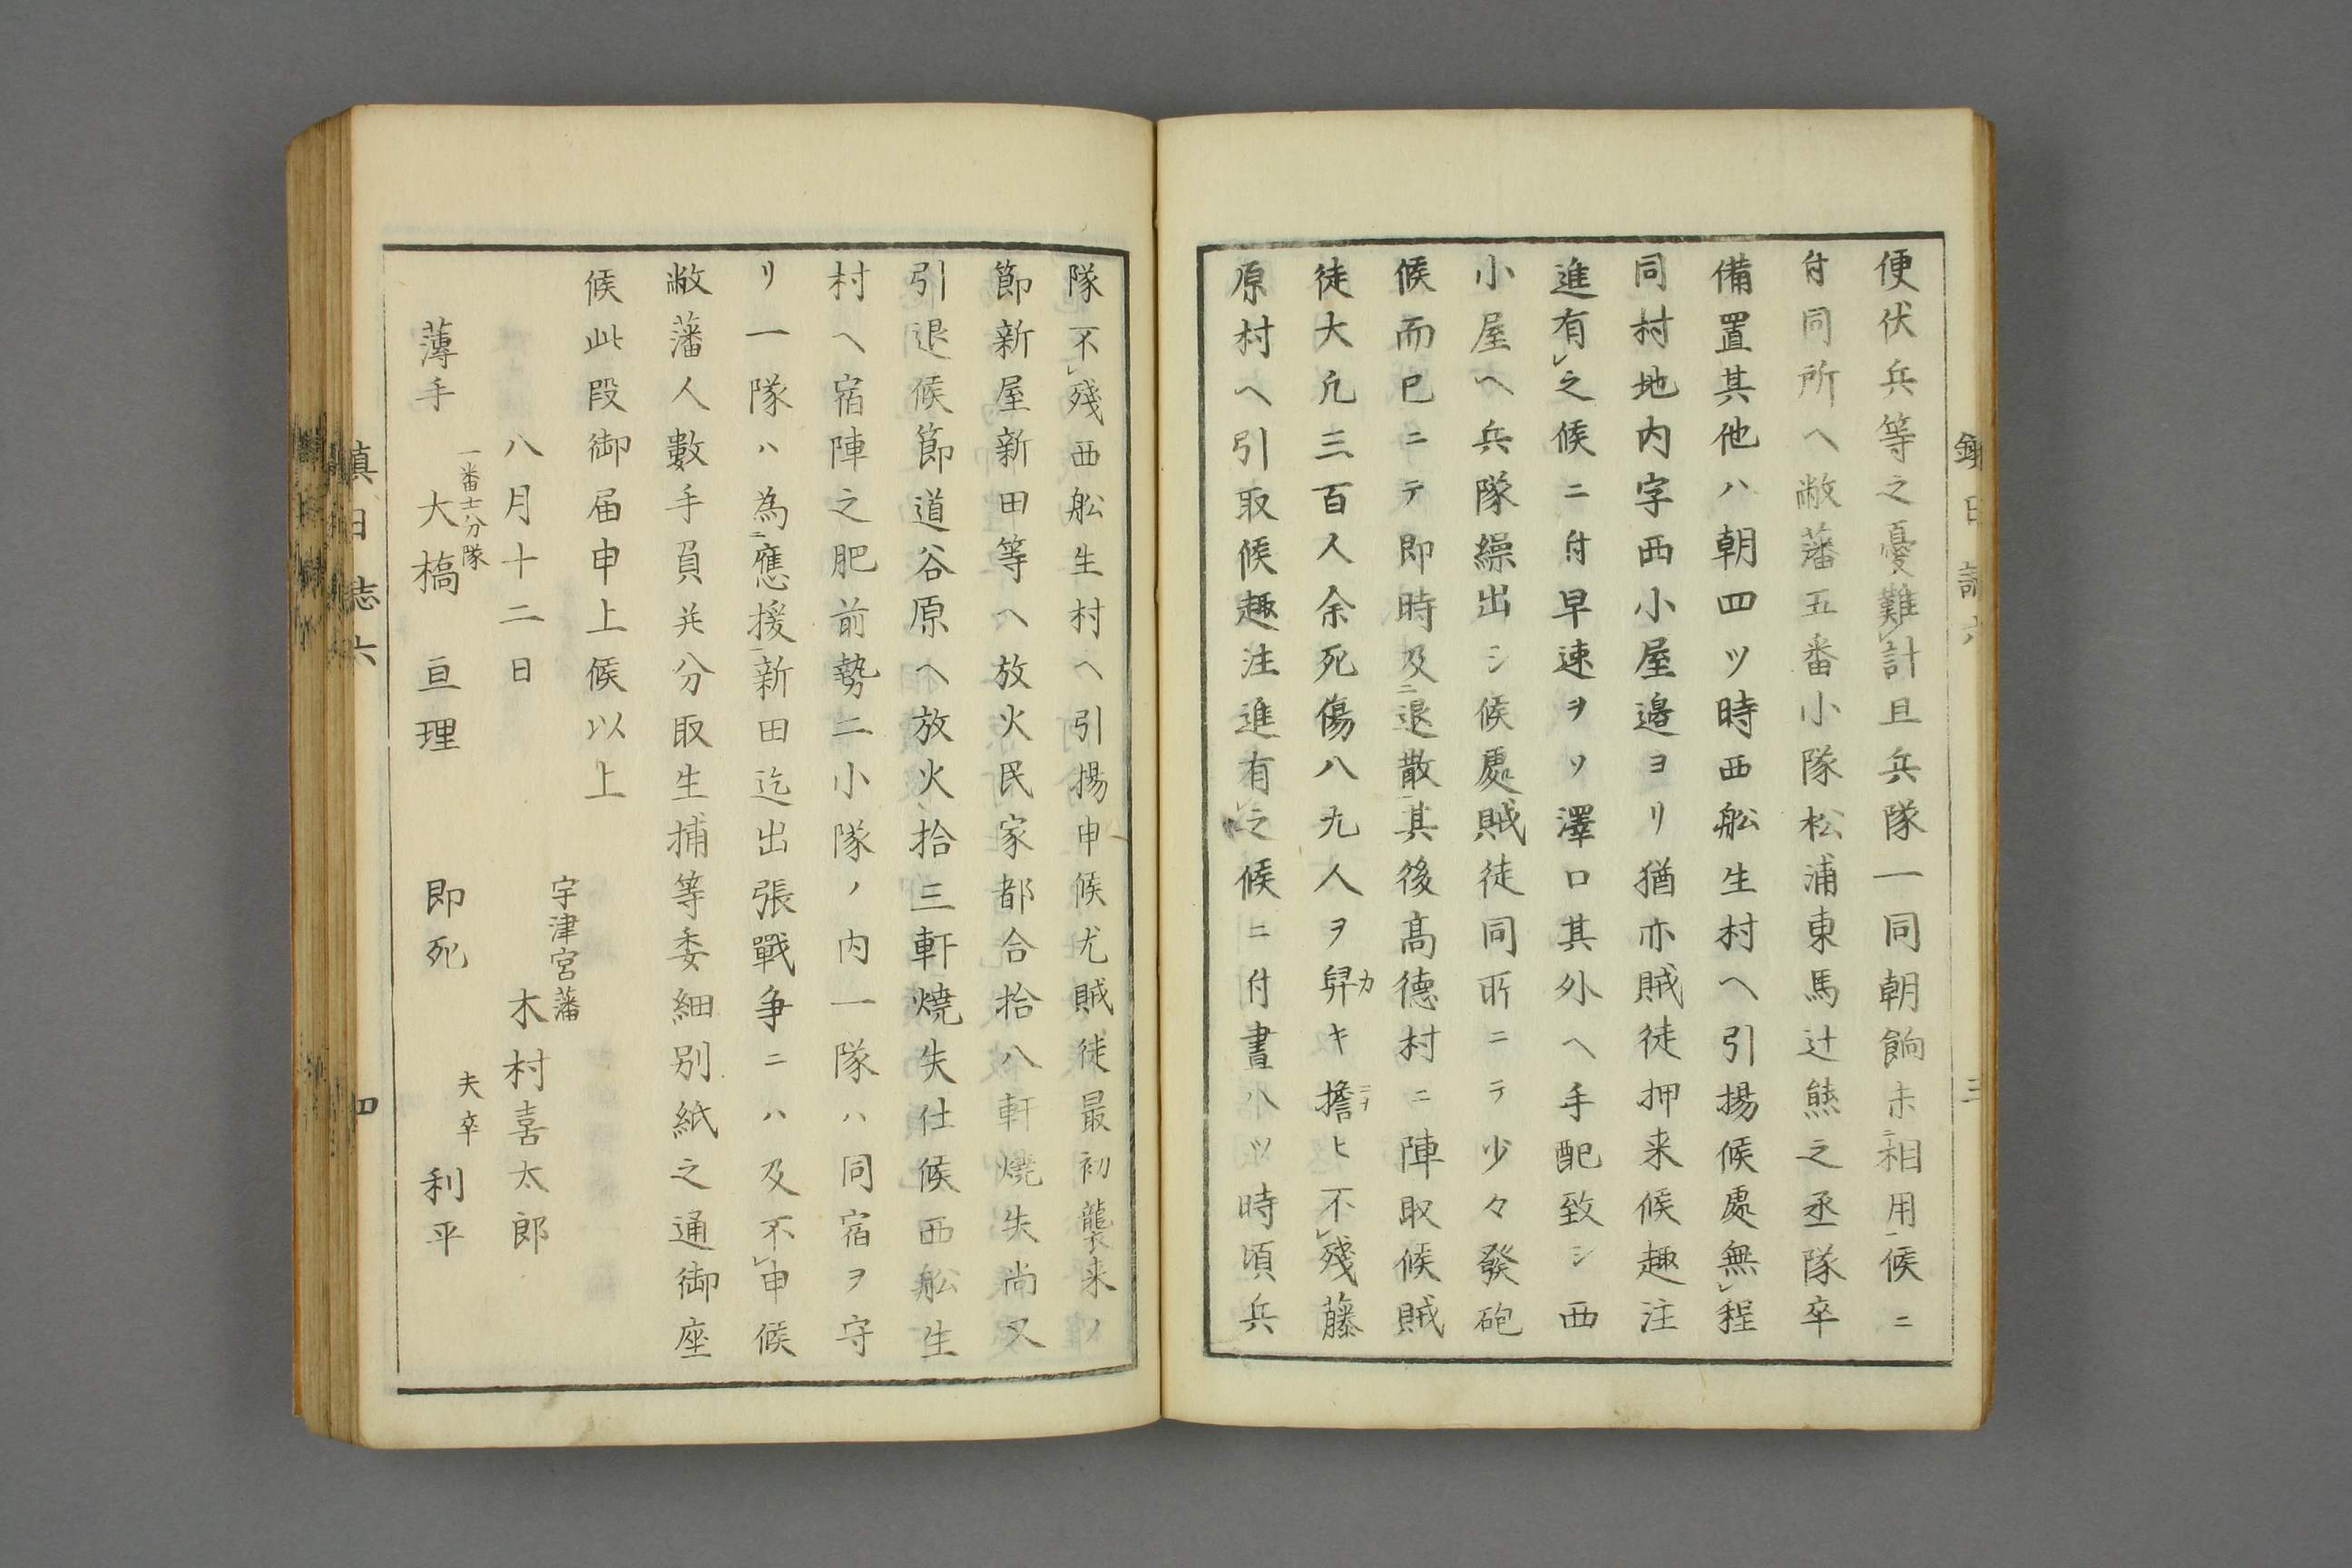 便伏兵等之憂難レ計且兵隊一同朝餉未ニ相用一候ニ
付同所ヘ敝藩五番小隊松浦東馬辻熊之丞隊卒
備置其他ハ朝四ツ時西舩生村ヘ引揚候處無レ程
同村地内字西小屋邉ヨリ猶亦賊徒押来候趣注
進有レ之候ニ付早速ヲソ澤口其外ヘ手配致シ西
小屋ヘ兵隊繰出シ候處賊徒同所ニテ少々發砲
候而已ニテ即時及ニ退散一其後髙德村ニ陣取候賊
徒大凢三百人余死傷八九人ヲ舁キ擔ヒ不レ殘藤
カ
ニナ
原村ヘ引取候趣注進有レ之候ニ付晝八ツ時頃兵
鎮日誌六
三
隊不レ殘西舩生村ヘ引揚申候尤賊徒最初襲来ノ
節新屋新田等ヘ放火民家都合拾八軒燒失尚又
引退候節道谷原ヘ放火拾三軒燒失仕候西舩生
村ヘ宿陣之肥前勢二小隊ノ内一隊ハ同宿ヲ守
リ一隊ハ為ニ應援一新田迄出張戰争ニハ及不レ申候
敝藩人數手負并分取生捕等委細別紙之通御座
候此段御届申上候以上
宇津宮藩
八月十二日
木村喜太郎
一番士分隊
薄手 大橋亘理
夫卒
即死 利平
鎮日誌六
四